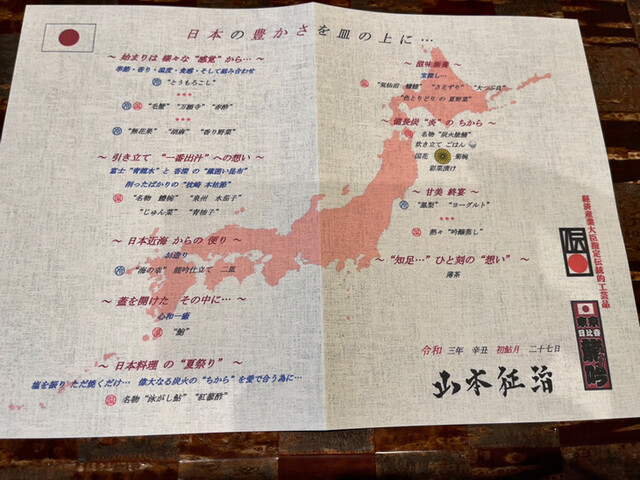 日本の豊かさを皿の上に…
～ 始まりは 様々な “感覚” から… ～
季節・香り・温度・食感・そして組み合わせ
冷 “とうもろこし”
***
冷 温 “毛蟹” “万願寺” “赤酢”
***
冷 “無花果” “胡麻” “香り野菜”
～ 引き立て “一番出汁” への想い ～
富士 “青龍水” と 香深 の “蔵囲い昆布”
削ったばかりの “枕崎 本枯節”
温 “名物 鱧椀” “泉州 水茄子”
“じゅん菜” “青柚子”
～ 日本近海 からの 便り ～
お造り
冷 “海の幸” 龍吟仕立て 二皿
～ 蓋を開けた その中に… ～
心和一癒
温 “鮑”
～ 日本料理 の “夏祭り” ～
塩を振り ただ焼くだけ… 偉大なる炭火の “ちから” を愛で合う為に…
温 名物 “泳がし鮎” “紅蓼酢”
～ 滋味 ～
温 “気仙沼 鱶鰭” “さえずり” “大つぶ貝”
“色とりどり の 夏野菜”
～ 備長炭 “炎” の ちから ～
名物 “炭火
炊き立て ごはん
国花 菊椀
彩菜漬け
～ 甘美 終宴 ～
冷 “鳳梨” “ヨーグルト”
***
温 “熱々 “吟醸蒸し”
～ “知足…” ひと刻の “想い” ～
薄茶
経済産業大臣指定伝統的工芸品
伝
東京
日比谷
龍吟
令和 三年 辛丑 初鮎月 二十七日
山本征治